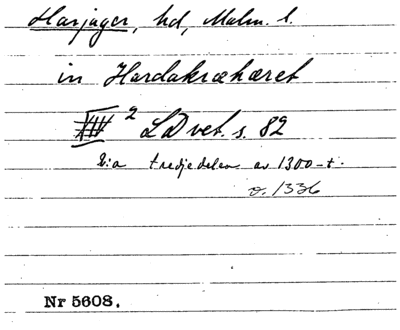 Harjager, hd, Malm. l.
in Hardakræhæret
XIV 2 LDvet. s. 82
2:a tredjedelen av 1300-t.
o. 1336
Nr 5608.